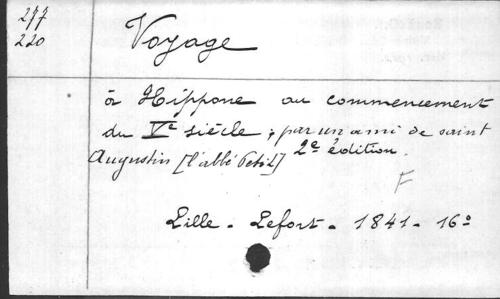 277
220
Voyage
à Hippone au commencement
du Ve siècle ; par un ami de saint
Augustin [l'abbé Petit] 2e édition.
F
Lille - Lefort - 1841 - 16o